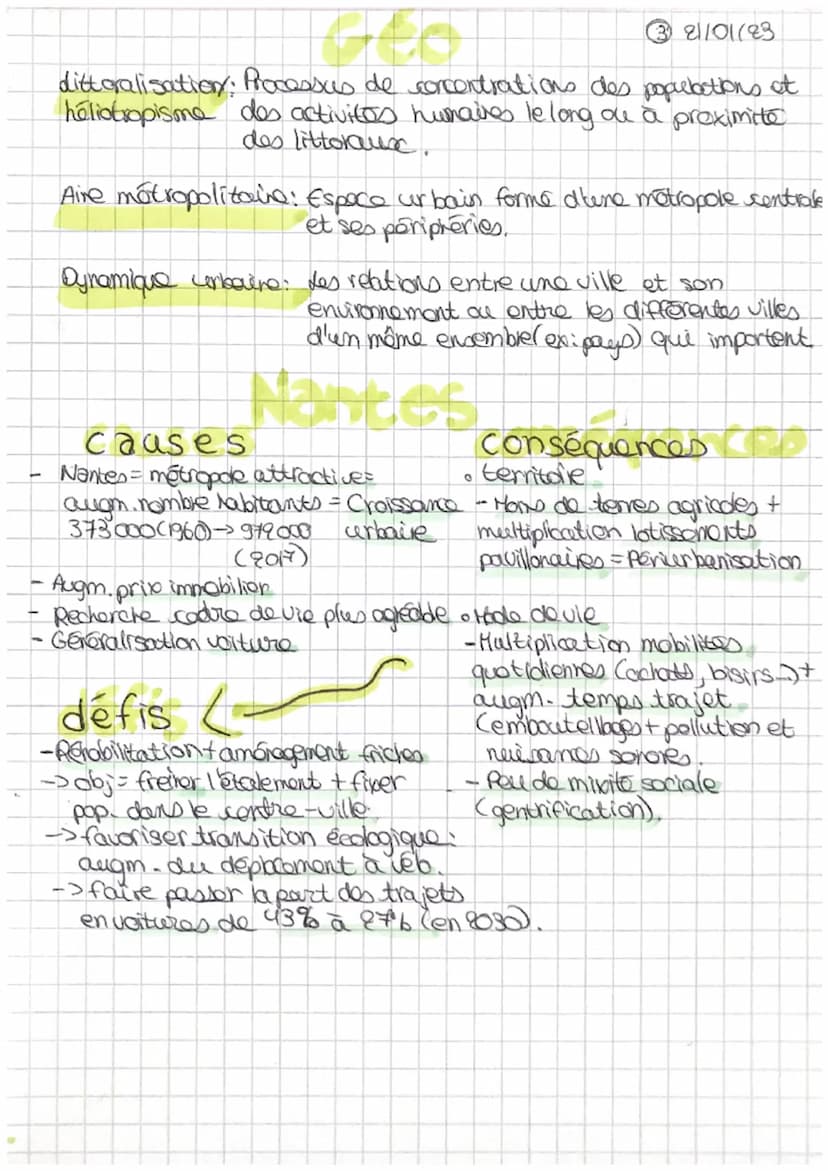 Géo
③ 21/01/23
littoralisation: Processus de concentrations des populations et
héliotropisme des activités humaines le long ou à proximité
des littoraux.
Aire métropolitaine: Espace urbain formé d'une métropole centrale
et ses périphéries.
Dynamique urbaine: les relations entre une ville et son
environnement ou entre les différentes villes
d'un même ensemble (ex: pays) qui importent
Nantes
causes
- Nantes = métropole attractive =
augm. nombre habitants = Croissance
373'000 (1960) -> 979000 urbaine
(2017)
- Augm. prix immobilier
- Recherche cadre de vie plus agréable
- Généralisation voiture
défis
- Réhabilitation + aménagement friches
-> obj = freiner l'étalement + fixer
pop. dans le centre-ville.
-> favoriser transition écologique:
augm. du déplacement à vélo.
-> faire passer la part des trajets
en voitures de 43% à 27% (en 2030).
conséquences
• territoire
- Moins de terres agricoles +
multiplication lotissements
pavillonaires = Périurbanisation
• Mode de vie
- Multiplication mobilités
quotidiennes (achats, loisirs...) +
augm. temps trajet
(emboutellages + pollution et
nuisances sonores.
- Peu de mixité sociale
(gentrification).